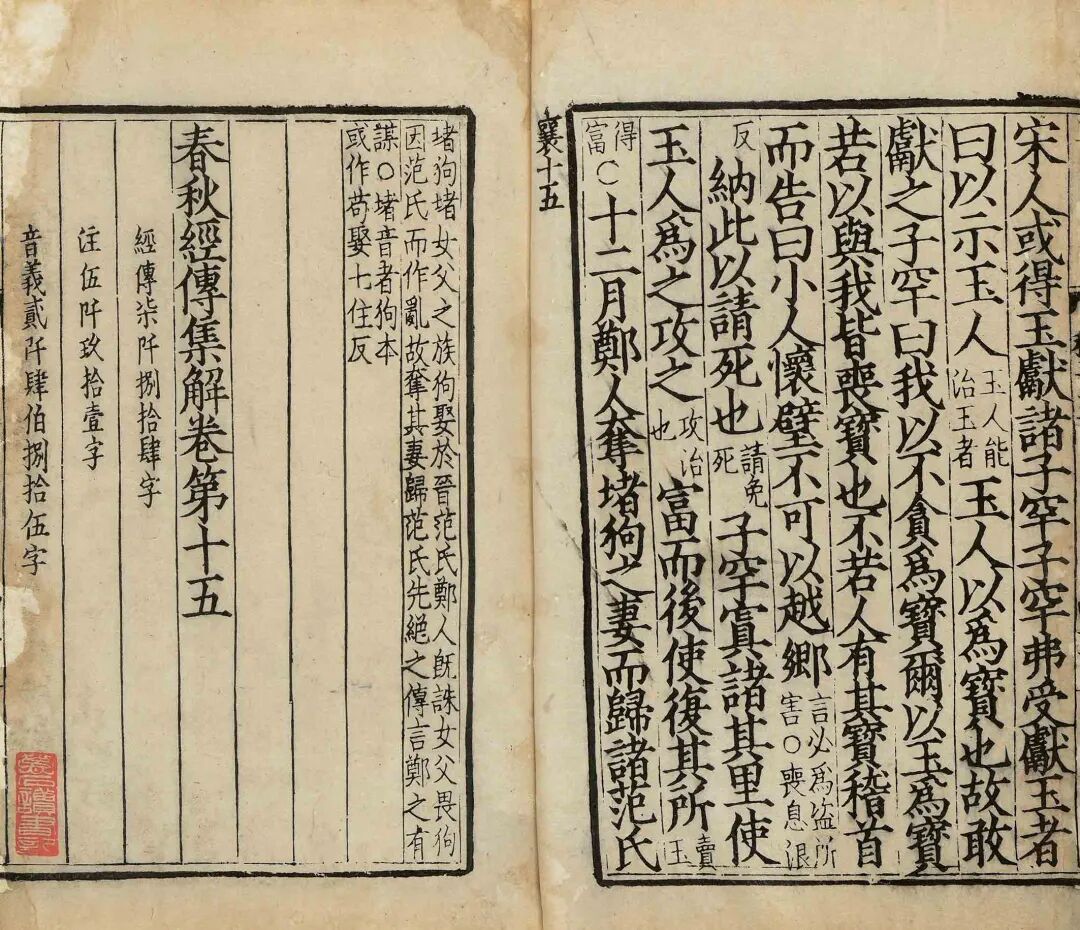 宋人或得玉獻諸子罕子罕弗受獻玉者
曰以示玉人玉人能治玉者玉人以爲寶也故敢
獻之子罕曰我以不貪爲寶爾以玉爲寶
若以與我皆喪寶也不若人有其寶稽首
而告曰小人懷璧不可以越鄉言必爲盜所害○喪息浪
反納此以請死也請免死子罕寘諸其里使
玉人爲之攻之攻治也富而後使復其所賣玉
得富○十二月鄭人奪堵狗之妻而歸諸范氏
襄十五
堵狗堵女父之族狗娶於晉范氏鄭人既誅女父畏狗
因范氏而作亂故奪其妻歸范氏先絕之傳言鄭之有
謀○堵音者狗本
或作苟娶七住反
春秋經傳集解卷第十五
經傳柒阡捌拾肆字
注伍阡玖拾壹字
音義貳阡肆伯捌拾伍字